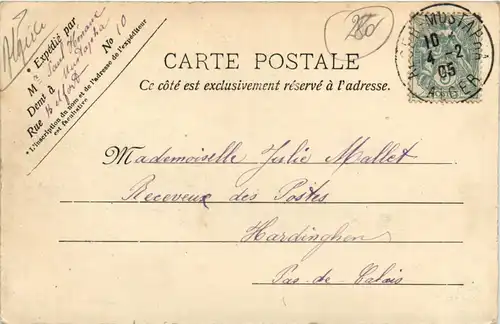 Algérie
* Expédié par
M
Demt à Mustapha
Rue No 10
* L'inscription du nom et de l'adresse de l'expéditeur
est facultative
280
CARTE POSTALE
Ce côté est exclusivement réservé à l'adresse.
MUSTAPHA
10
4-2
05
ALGER
Mademoiselle Julie Mallet
Receveuse des Postes
Hardinghen
Pas-de-Calais